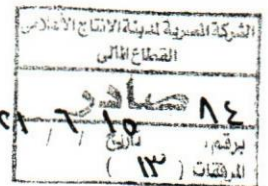 الشركة المصرية لمدينة الانتاج الاعلامى
القطاع المالى
صادر
برقم : ٨٤ تاريخ ١٥ / ٦ /
المرفقات ( ١٣ )